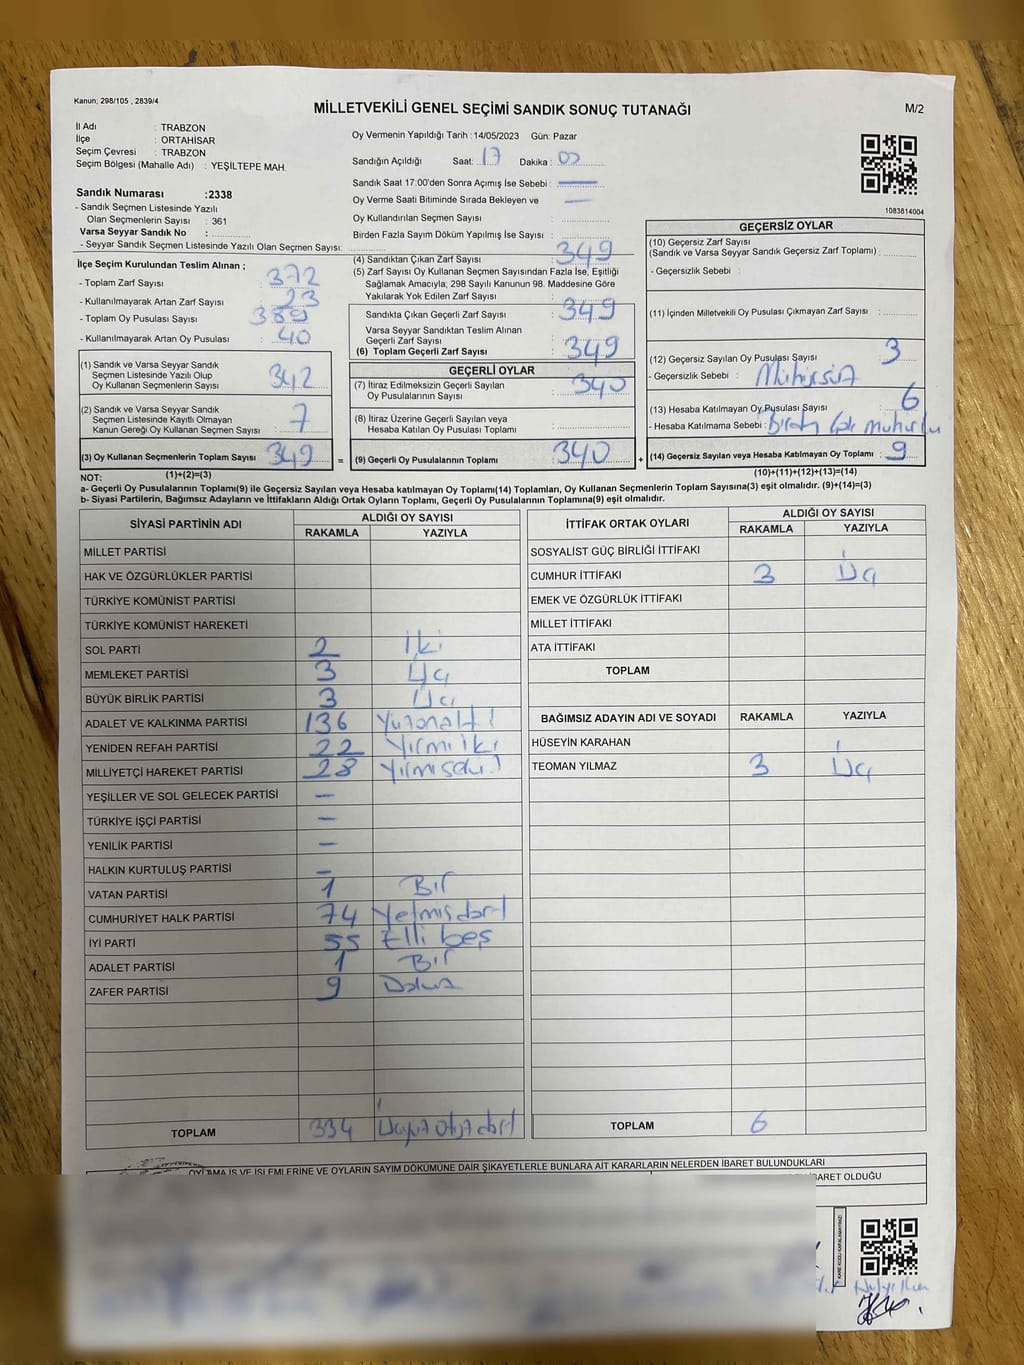 Kanun; 298/105 , 2839/4
MİLLETVEKİLİ GENEL SEÇİMİ SANDIK SONUÇ TUTANAĞI
M/2
İl Adı : TRABZON
İlçe : ORTAHİSAR
Seçim Çevresi : TRABZON
Seçim Bölgesi (Mahalle Adı) : YEŞİLTEPE MAH.
Sandık Numarası :2338
- Sandık Seçmen Listesinde Yazılı
Olan Seçmenlerin Sayısı : 361
Varsa Seyyar Sandık No :
- Seyyar Sandık Seçmen Listesinde Yazılı Olan Seçmen Sayısı:
Oy Vermenin Yapıldığı Tarih :14/05/2023 Gün: Pazar
Sandığın Açıldığı Saat: 17 Dakika: 00
Sandık Saat 17:00'den Sonra Açımış İse Sebebi : —
Oy Verme Saati Bitiminde Sırada Bekleyen ve —
Oy Kullandırılan Seçmen Sayısı :
Birden Fazla Sayım Döküm Yapılmış İse Sayısı :
1083814004
İlçe Seçim Kurulundan Teslim Alınan ;
- Toplam Zarf Sayısı : 372
- Kullanılmayarak Artan Zarf Sayısı : 23
- Toplam Oy Pusulası Sayısı : 389
- Kullanılmayarak Artan Oy Pusulası : 40
(1) Sandık ve Varsa Seyyar Sandık
Seçmen Listesinde Yazılı Olup
Oy Kullanan Seçmenlerin Sayısı : 342
(2) Sandık ve Varsa Seyyar Sandık
Seçmen Listesinde Kayıtlı Olmayan
Kanun Gereği Oy Kullanan Seçmen Sayısı : 7
(3) Oy Kullanan Seçmenlerin Toplam Sayısı : 349
(1)+(2)=(3)
(4) Sandıktan Çıkan Zarf Sayısı : 349
(5) Zarf Sayısı Oy Kullanan Seçmen Sayısından Fazla İse, Eşitliği
Sağlamak Amacıyla; 298 Sayılı Kanunun 98. Maddesine Göre
Yakılarak Yok Edilen Zarf Sayısı :
Sandıkta Çıkan Geçerli Zarf Sayısı : 349
Varsa Seyyar Sandıktan Teslim Alınan
Geçerli Zarf Sayısı :
(6) Toplam Geçerli Zarf Sayısı : 349
GEÇERLİ OYLAR
(7) İtiraz Edilmeksizin Geçerli Sayılan
Oy Pusulalarının Sayısı : 340
(8) İtiraz Üzerine Geçerli Sayılan veya
Hesaba Katılan Oy Pusulası Toplamı :
= (9) Geçerli Oy Pusulalarının Toplamı : 340 +
GEÇERSİZ OYLAR
(10) Geçersiz Zarf Sayısı
(Sandık ve Varsa Seyyar Sandık Geçersiz Zarf Toplamı) :
- Geçersizlik Sebebi :
(11) İçinden Milletvekili Oy Pusulası Çıkmayan Zarf Sayısı :
(12) Geçersiz Sayılan Oy Pusulası Sayısı : 3
- Geçersizlik Sebebi : Mühürsüz
(13) Hesaba Katılmayan Oy Pusulası Sayısı : 6
- Hesaba Katılmama Sebebi : Birden Çok mühürlü
(14) Geçersiz Sayılan veya Hesaba Katılmayan Oy Toplamı : 9
(10)+(11)+(12)+(13)=(14)
NOT:
a- Geçerli Oy Pusulalarının Toplamı(9) ile Geçersiz Sayılan veya Hesaba katılmayan Oy Toplamı(14) Toplamları, Oy Kullanan Seçmenlerin Toplam Sayısına(3) eşit olmalıdır. (9)+(14)=(3)
b- Siyasi Partilerin, Bağımsız Adayların ve İttifakların Aldığı Ortak Oyların Toplamı, Geçerli Oy Pusulalarının Toplamına(9) eşit olmalıdır.
SİYASİ PARTİNİN ADI
ALDIĞI OY SAYISI
RAKAMLA YAZIYLA
MİLLET PARTİSİ
HAK VE ÖZGÜRLÜKLER PARTİSİ
TÜRKİYE KOMÜNİST PARTİSİ
TÜRKİYE KOMÜNİST HAREKETİ
SOL PARTİ 2 İki
MEMLEKET PARTİSİ 3 Üç
BÜYÜK BİRLİK PARTİSİ 3 Üç
ADALET VE KALKINMA PARTİSİ 136
YENİDEN REFAH PARTİSİ 22 Yirmi İki
MİLLİYETÇİ HAREKET PARTİSİ 28
YEŞİLLER VE SOL GELECEK PARTİSİ —
TÜRKİYE İŞÇİ PARTİSİ —
YENİLİK PARTİSİ —
HALKIN KURTULUŞ PARTİSİ —
VATAN PARTİSİ 1 Bir
CUMHURİYET HALK PARTİSİ 74 Yetmiş dört
İYİ PARTİ 55 Elli beş
ADALET PARTİSİ 1 Bir
ZAFER PARTİSİ 9 Dokuz
TOPLAM 334 Üçyüz otuz dört
İTTİFAK ORTAK OYLARI
ALDIĞI OY SAYISI
RAKAMLA YAZIYLA
SOSYALİST GÜÇ BİRLİĞİ İTTİFAKI
CUMHUR İTTİFAKI 3 Üç
EMEK VE ÖZGÜRLÜK İTTİFAKI
MİLLET İTTİFAKI
ATA İTTİFAKI
TOPLAM
BAĞIMSIZ ADAYIN ADI VE SOYADI RAKAMLA YAZIYLA
HÜSEYİN KARAHAN
TEOMAN YILMAZ 3 Üç
TOPLAM 6
OYLAMA İŞ VE İŞLEMLERİNE VE OYLARIN SAYIM DÖKÜMÜNE DAİR ŞİKAYETLERLE BUNLARA AİT KARARLARIN NELERDEN İBARET BULUNDUKLARI
İBARET OLDUĞU